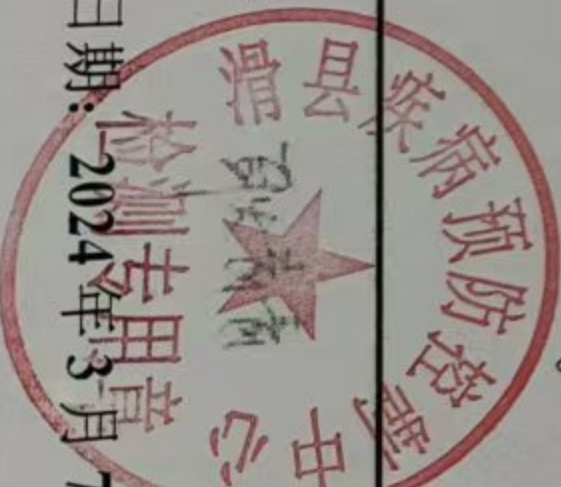 滑县疾病预防控制中心
检测专用章
日期: 2024年3月7